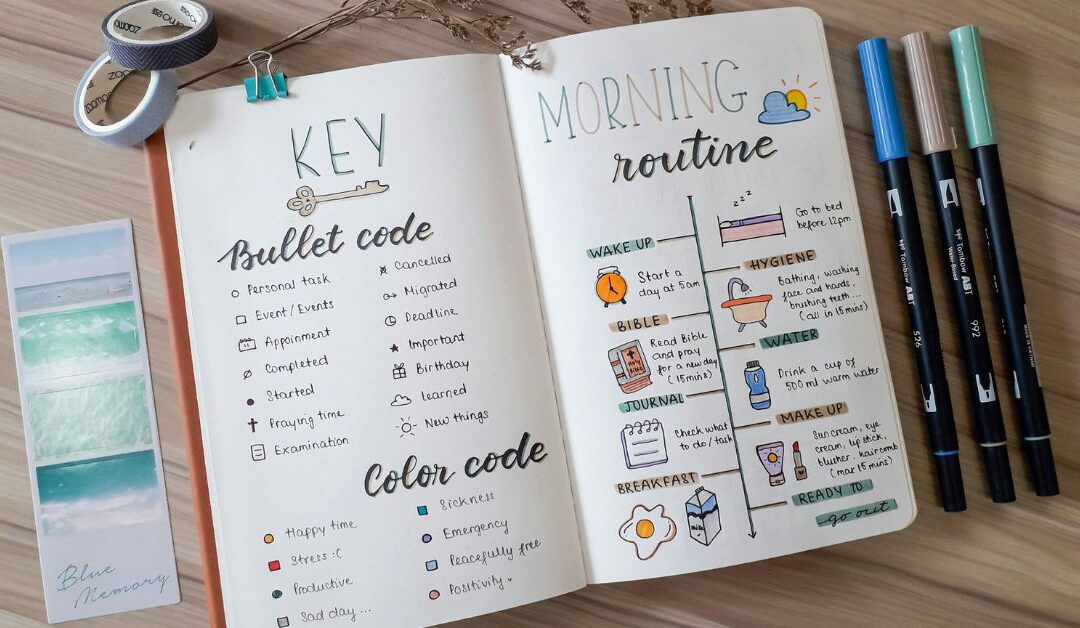 KEY
Bullet code
Personal task
Event/Events
Appoinment
Completed
Started
Praying time
Examination
Cancelled
Migrated
Deadline
Important
Birthday
Learned
New things
Color code
Happy time
Stress :(
Productive
Sad day ...
Sickness
Emergency
Peacefully free
Positivity
MORNING
routine
zzz
Go to bed
before 12pm
WAKE UP
Start a
day at 5am
HYGIENE
Bathing, washing
face and hands,
brushing teeth...
(all in 15mins)
BIBLE
Holy
Bible
Read Bible
and pray
for a new day
(15mins)
WATER
Drink a cup of
500ml warm water
JOURNAL
Check what
to do/task
MAKE UP
Suncream, eye
cream, lipstick,
blusher, haircomb
(max 15 mins)
BREAKFAST
milk
READY TO
go out
Blue
Memory
Tombow ABT
526
Tombow ABT
Water Based
992